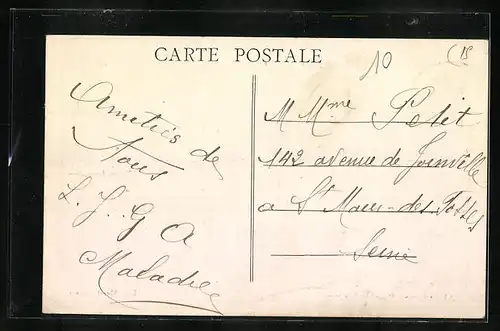 CARTE POSTALE
10
15
Amitiés de
tous
L. J. G A
Maladrie
M Mme Petit
142 avenue de Joinville
a St Maur-des-Fossés
Seine